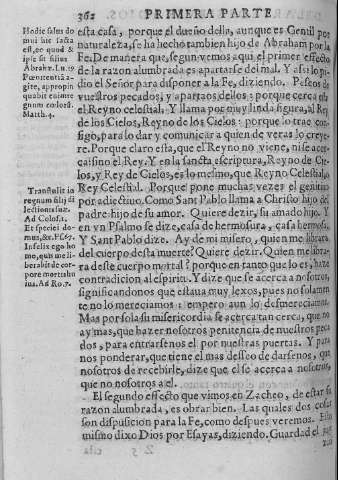 362
PRIMERA PARTE
Hodie salus do
mui huic facta
est, eo quod &
ipse sit filius
Abrahæ. Lu. 19
Pœnitentiã a-
gite, appropin
quabit enim re
gnum cœlorũ.
Matth. 4.
Transtulit in
regnum filij di
lectionis suæ.
Ad Colos. 1.
Et speciei do-
mus, &c. Ps. 67.
Infelix ego ho
mo, quis me li
berabit de cor
pore mortis hu
ius. Ad Ro. 7.
esta casa, porque el dueño della, aunque es Gentil por
naturaleza, se ha hecho tambien hijo de Abraham por la
Fe. De manera que, segun vemos aqui, el primer effecto
de la razon alumbrada es apartarse del mal. Y assi lo pi-
dio el Señor para disponer a la Fe, diziendo. Peseos de
vuestros pecados, y apartaos dellos: porque cerca està
el Reyno celestial. Y llama por muy linda figura, al Rey
de los Cielos, Reyno de los Cielos: porque lo trae con-
sigo, para lo dar y comunicar a quien de veras lo creye-
re. Porque claro esta, que el Reyno no viene, ni se acer-
ca sino el Rey. Y en la sancta escriptura, Reyno de Cie-
los, y Rey de Cielos, es lo mesmo, que Reyno Celestial, o
Rey Celestial. Porque pone muchas vezes el genitiuo
por adiectiuo. Como Sant Pablo llama a Christo hijo del
padre hijo de su amor. Quiere dezir, su amado hijo. Y en
vn Psalmo se dize, casa de hermosura, casa hermosa.
Y Sant Pablo dize. Ay de mi misero, quien me librara
del cuerpo desta muerte? Quiere dezir. Quien me libra-
ra deste cuerpo mortal? porque en tanto que lo es, haze
contradicion al espiritu. Y dize que se acerca a nosotros,
significandonos que estaua muy lexos, pues no solamen
te no lo mereciamos: empero aun lo desmereciamos.
Mas por sola su misericordia se acerca tan cerca, que no
ay mas, que hazer nosotros penitencia de nuestros peca
dos, para entrarsenos el por nuestras puertas. Y para
nos ponderar, que tiene el mas desseo de darsenos, que
nosotros de recebirle, dize que el se acerca a nosotros,
que no nosotros a el.
El segundo effecto que vimos en Zacheo, de estar su
razon alumbrada, es obrar bien. Las quales dos cosas
son dispusicion para la Fe, como despues veremos. Esto
mismo dixo Dios por Esayas, diziendo. Guardad el